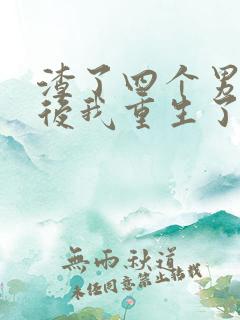 渣了四个男
後我重生了
無雨秋道
未经同意禁止转载